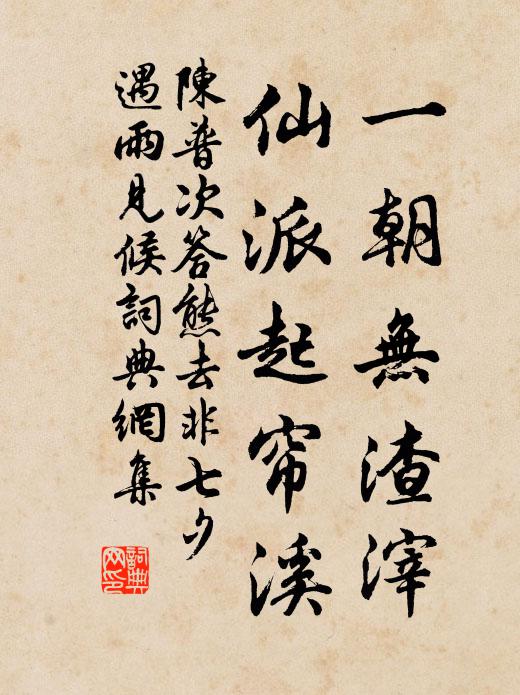 一朝無渣滓
仙派起帘溪
陳普次答熊去非七夕
遇雨見候詞典網集
詞典
网印